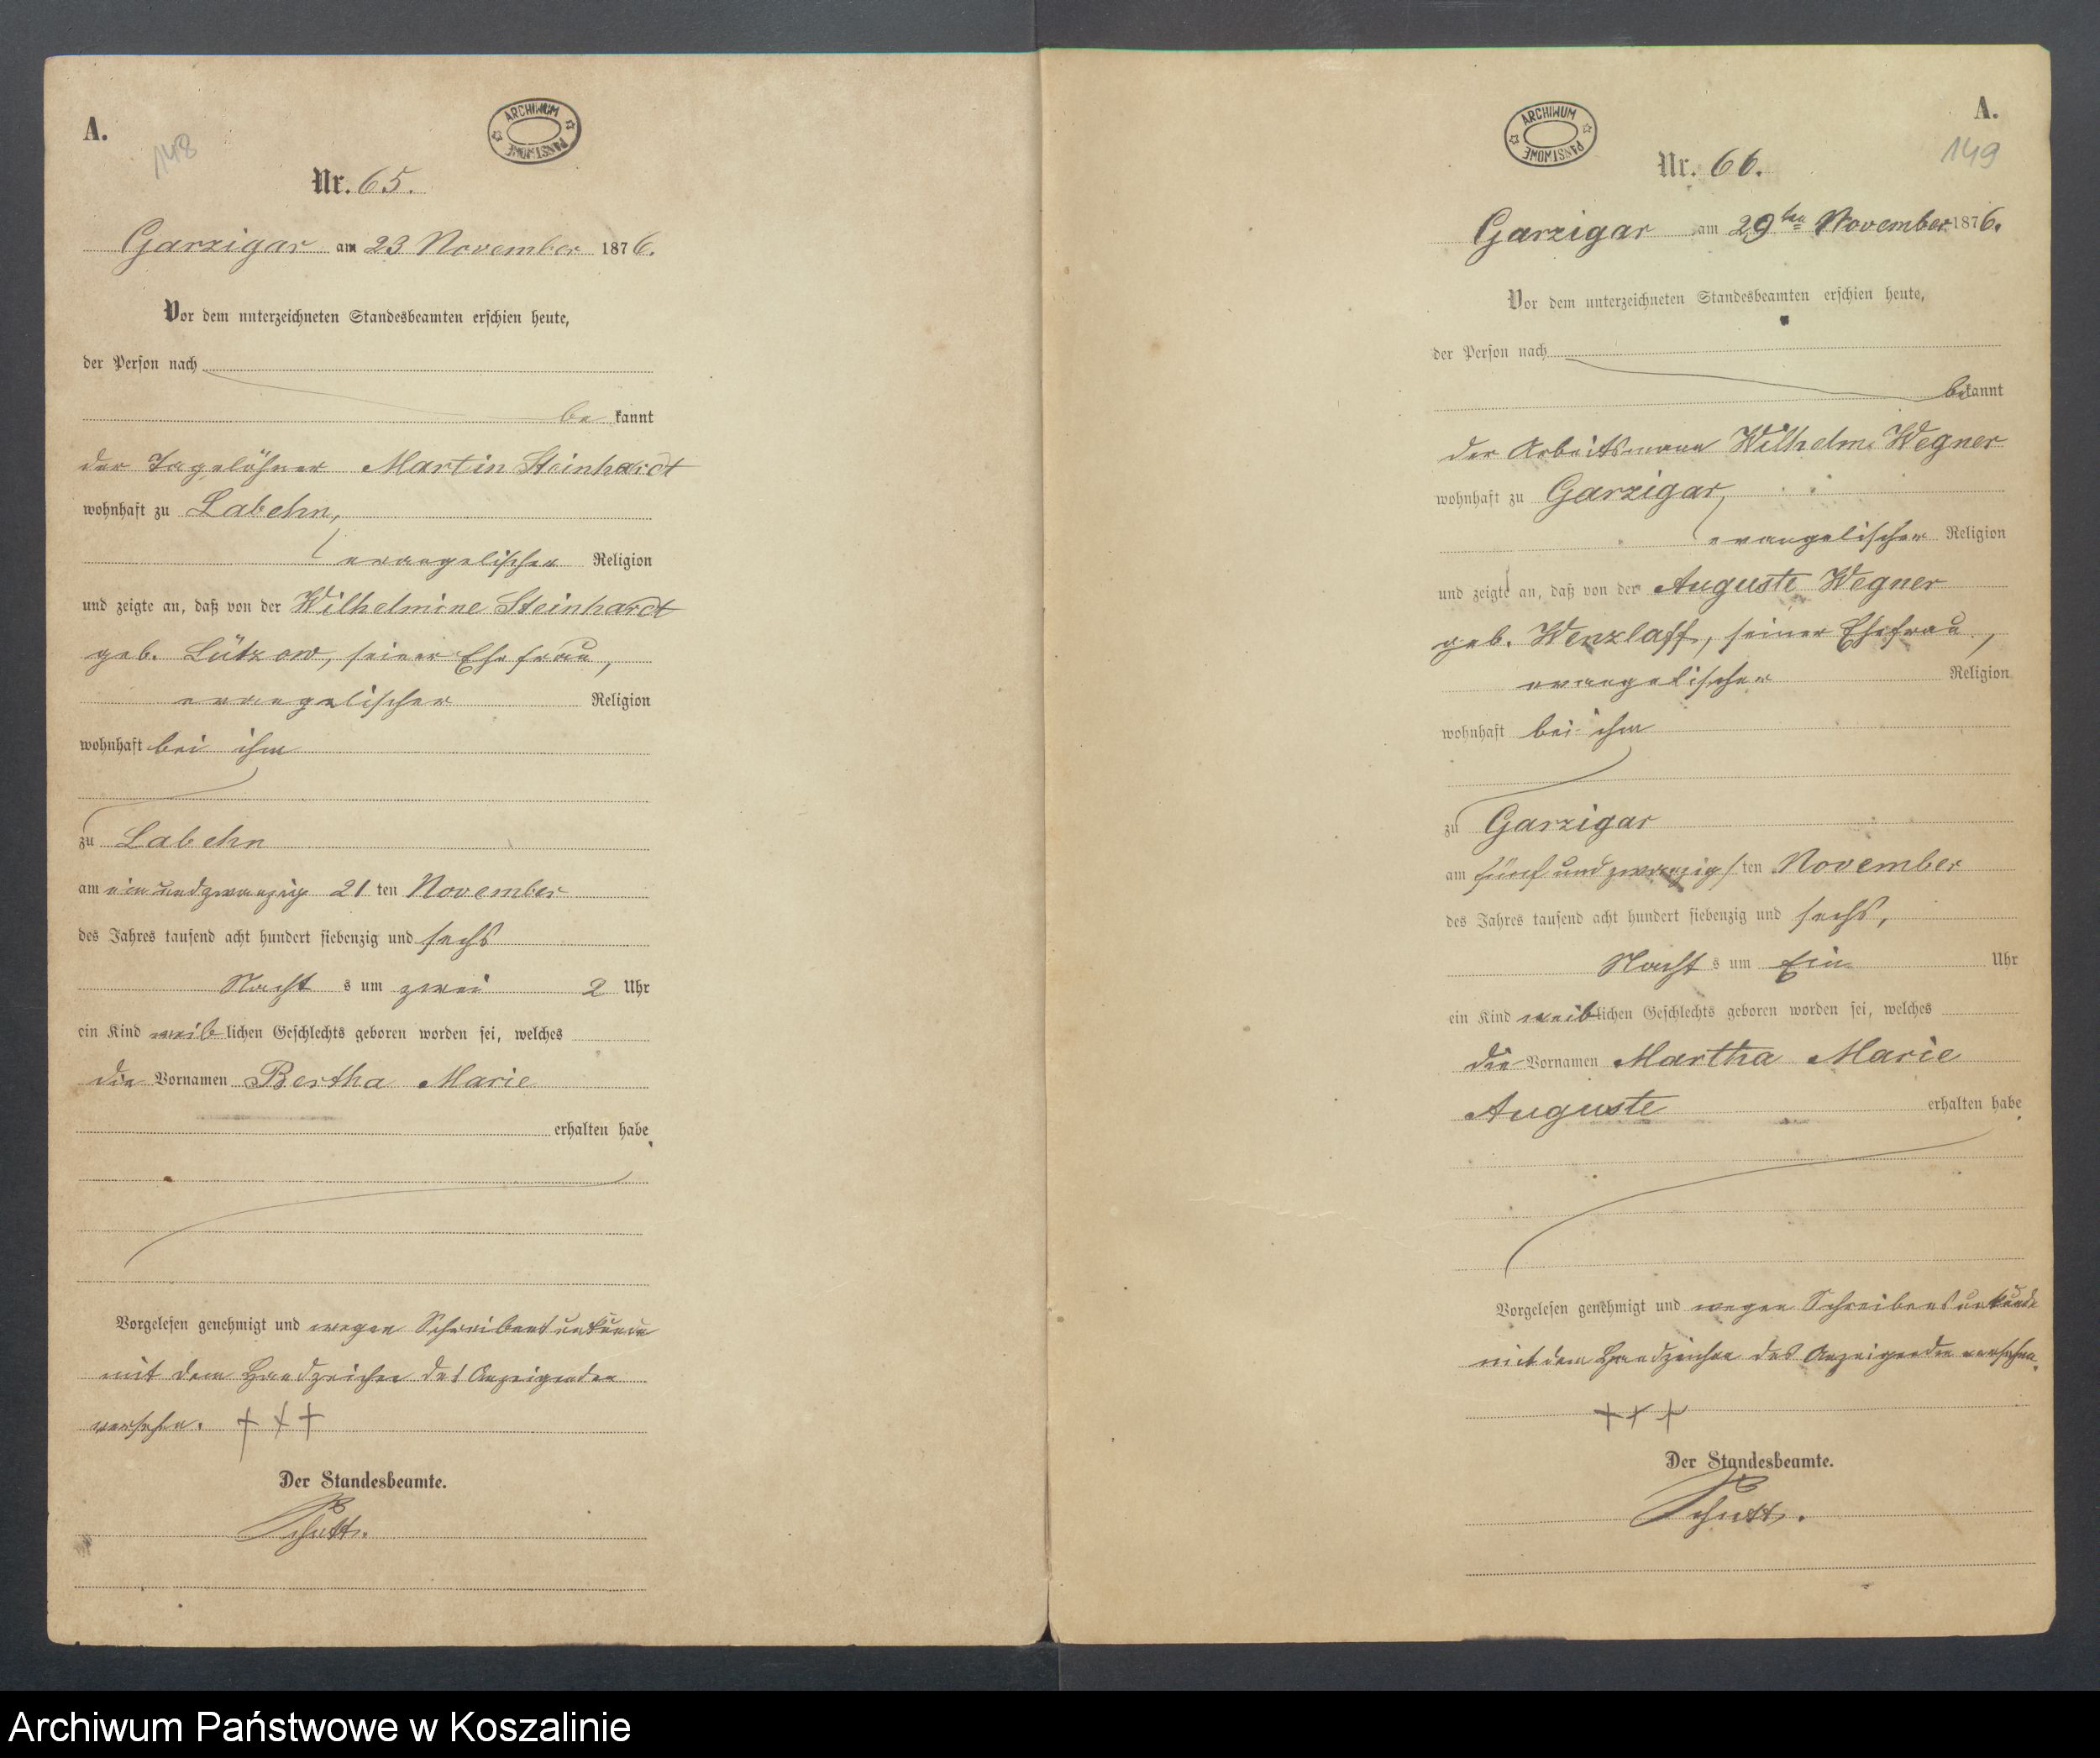 A.
148
ARCHIWUM PAŃSTWOWE
Nr. 65.
Garzigar am 23 November 1876.
Vor dem unterzeichneten Standesbeamten erschien heute,
der Person nach
be kannt
der Tagelöhner Martin Steinhardt
wohnhaft zu Labehn,
evangelischer Religion
und zeigte an, daß von der Wilhelmine Steinhardt
geb. Lützow, seiner Ehefrau,
evangelischer Religion
wohnhaft bei ihm
zu Labehn
am ein und zwanzig 21 ten November
des Jahres tausend acht hundert siebenzig und sechs
Nacht s um zwei 2 Uhr
ein Kind weib lichen Geschlechts geboren worden sei, welches
die Vornamen Bertha Marie
erhalten habe.
Vorgelesen genehmigt und wegen Schreibensunkunde
mit dem Handzeichen des Anzeigenden
versehen. +++
Der Standesbeamte.
Schutt.
A.
149
ARCHIWUM PAŃSTWOWE
Nr. 66.
Garzigar am 29ten November 1876.
Vor dem unterzeichneten Standesbeamten erschien heute,
der Person nach
bekannt
der Arbeitsmann Wilhelm Wegner
wohnhaft zu Garzigar,
evangelischer Religion
und zeigte an, daß von der Auguste Wegner
geb. Wenzlaff, seiner Ehefrau,
evangelischer Religion
wohnhaft bei ihm
zu Garzigar
am fünf und zwanzigsten November
des Jahres tausend acht hundert siebenzig und sechs,
Nacht s um Ein Uhr
ein Kind weiblichen Geschlechts geboren worden sei, welches
die Vornamen Martha Marie
Auguste erhalten habe.
Vorgelesen genehmigt und wegen Schreibensunkunde
mit dem Handzeichen des Anzeigenden versehen.
+++
Der Standesbeamte.
Schutt.
Archiwum Państwowe w Koszalinie